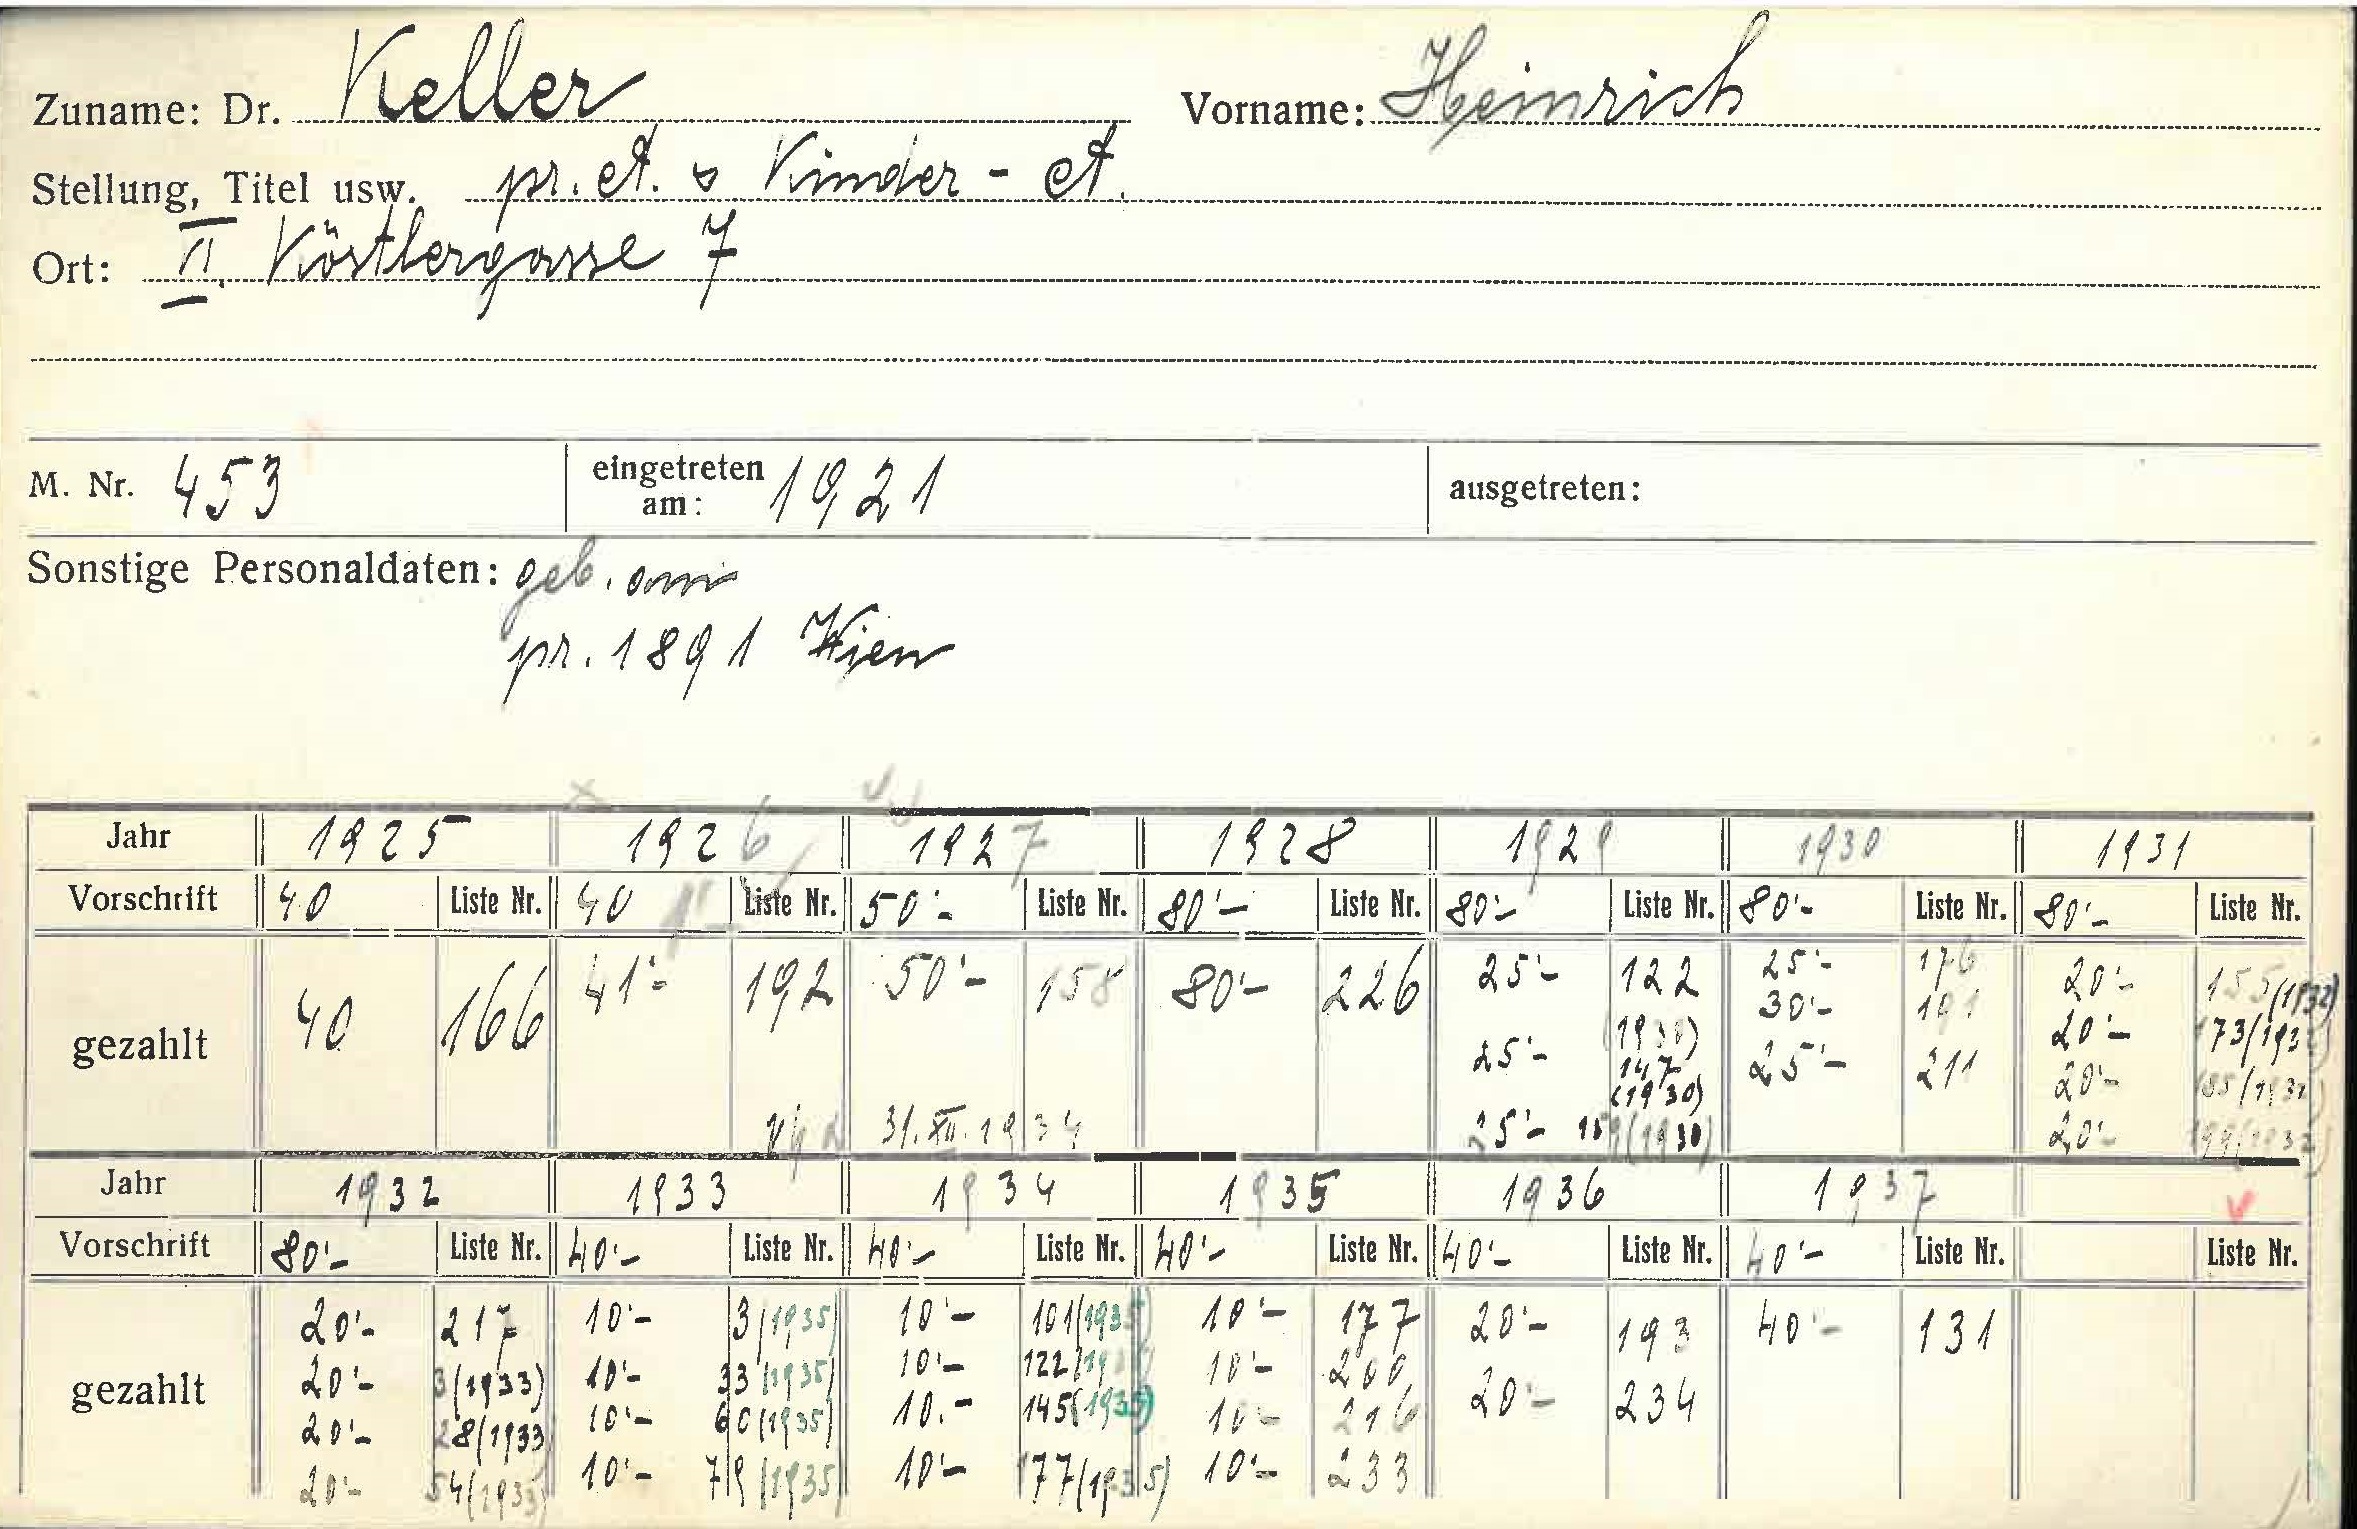 Zuname: Dr. Keller Vorname: Heinrich
Stellung, Titel usw. pr. A. s Kinder - A.
Ort: VI. Köstlergasse 7
M. Nr. 453 eingetreten am: 1921 ausgetreten:
Sonstige Personaldaten: geb.
pr. 1891 Wien
Jahr 1925 1926 1927 1928 1929 1930 1931
Vorschrift 40 Liste Nr. 40 Liste Nr. 50'- Liste Nr. 80'- Liste Nr. 80'- Liste Nr. 80'- Liste Nr. 80'- Liste Nr.
gezahlt 40 166 41'- 192 50'- 158 80'- 226 25'- 122 (1930) 25'- 176 20'- 155 (1932)
25'- 147 (1930) 30'- 191 20'- 173/1932)
25'- 159 (1930) 25'- 211 20'- 185/1932)
20'- 199 (1932)
31. XII. 1934
Jahr 1932 1933 1934 1935 1936 1937
Vorschrift 80'- Liste Nr. 40'- Liste Nr. 40'- Liste Nr. 40'- Liste Nr. 40'- Liste Nr. 40'- Liste Nr. Liste Nr.
gezahlt 20'- 217 10'- 3/1935) 10'- 101(1935) 10'- 177 20'- 193 40'- 131
20'- 3(1933) 10'- 33(1935) 10'- 122 10'- 200 20'- 234
20'- 28(1933 10'- 60(1935) 10.- 145(1935) 10'- 216
20'- 54(1933) 10'- 79(1935) 10'- 177/(1935) 10'- 233